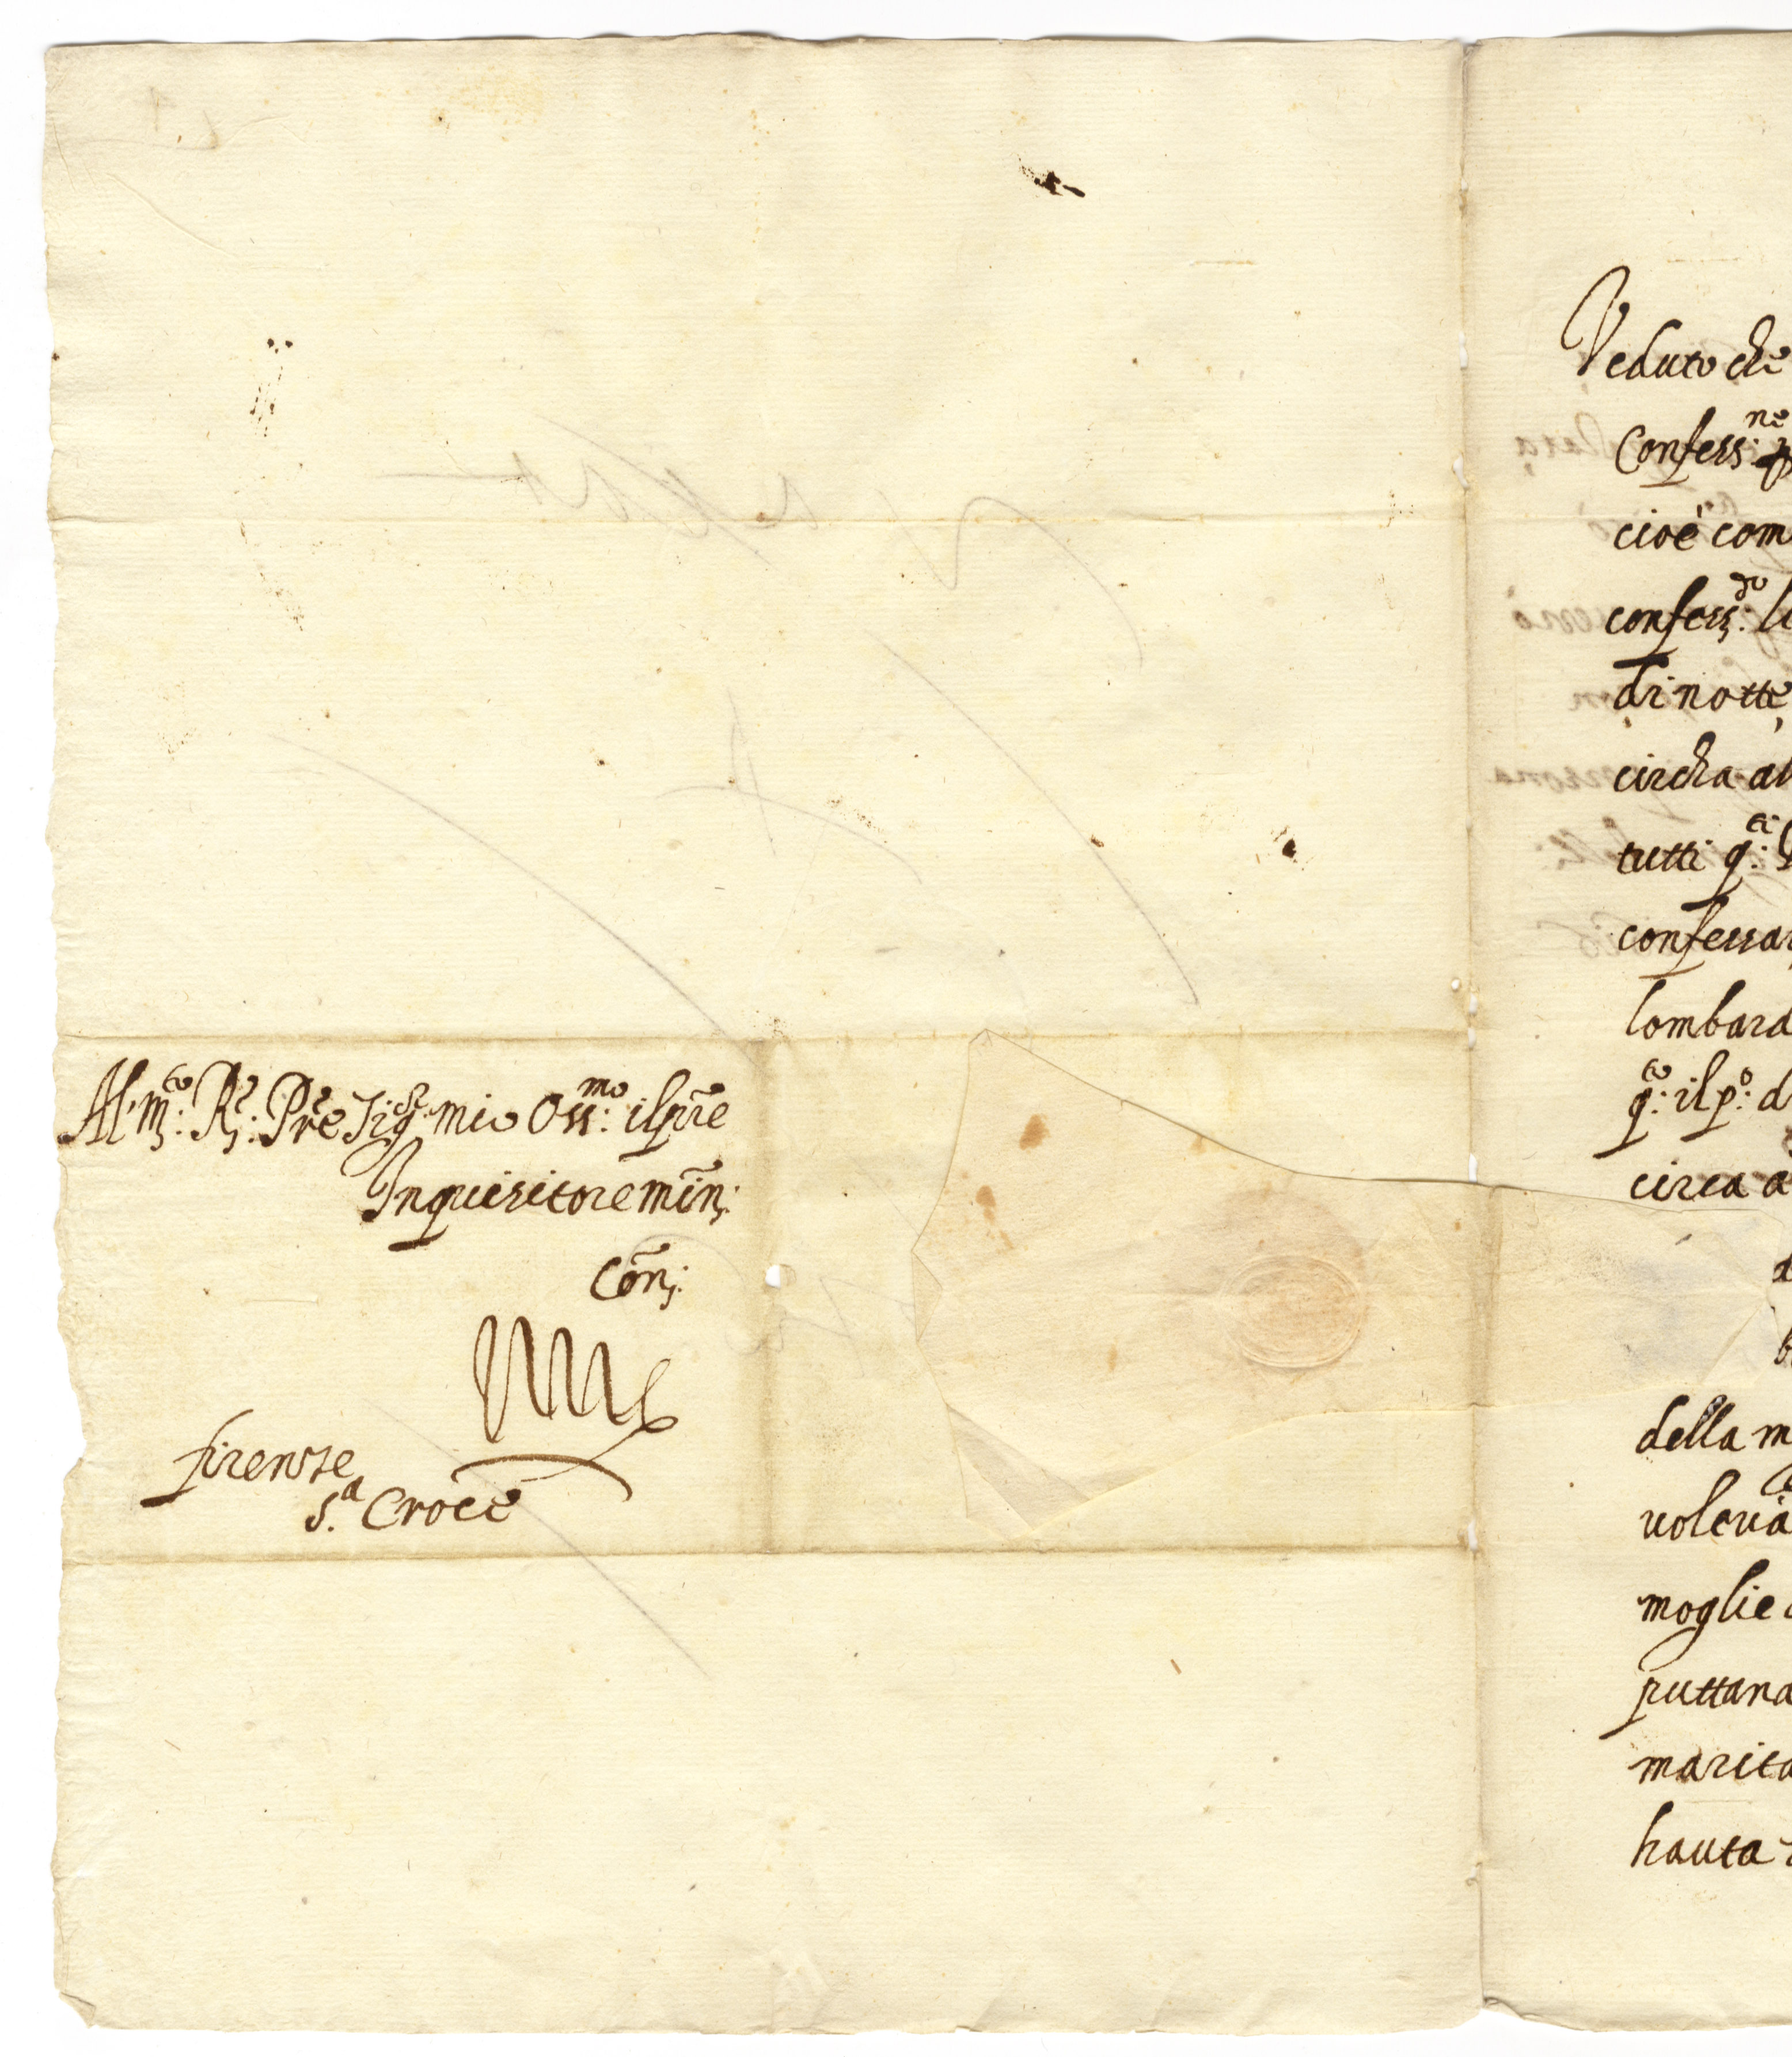 Al m:to R: Pre Sig:r mio Oss:mo il pre
Inquisitore min:
Con:
firenze
S.a Croce
Veduto che
Confess:ne
cioè com
confess:do
di notte,
circha al
tutti q:ti
confessar
lombard
q:to il p:o d
circa a
della m
voleva
moglie
puttana
marita
hauta